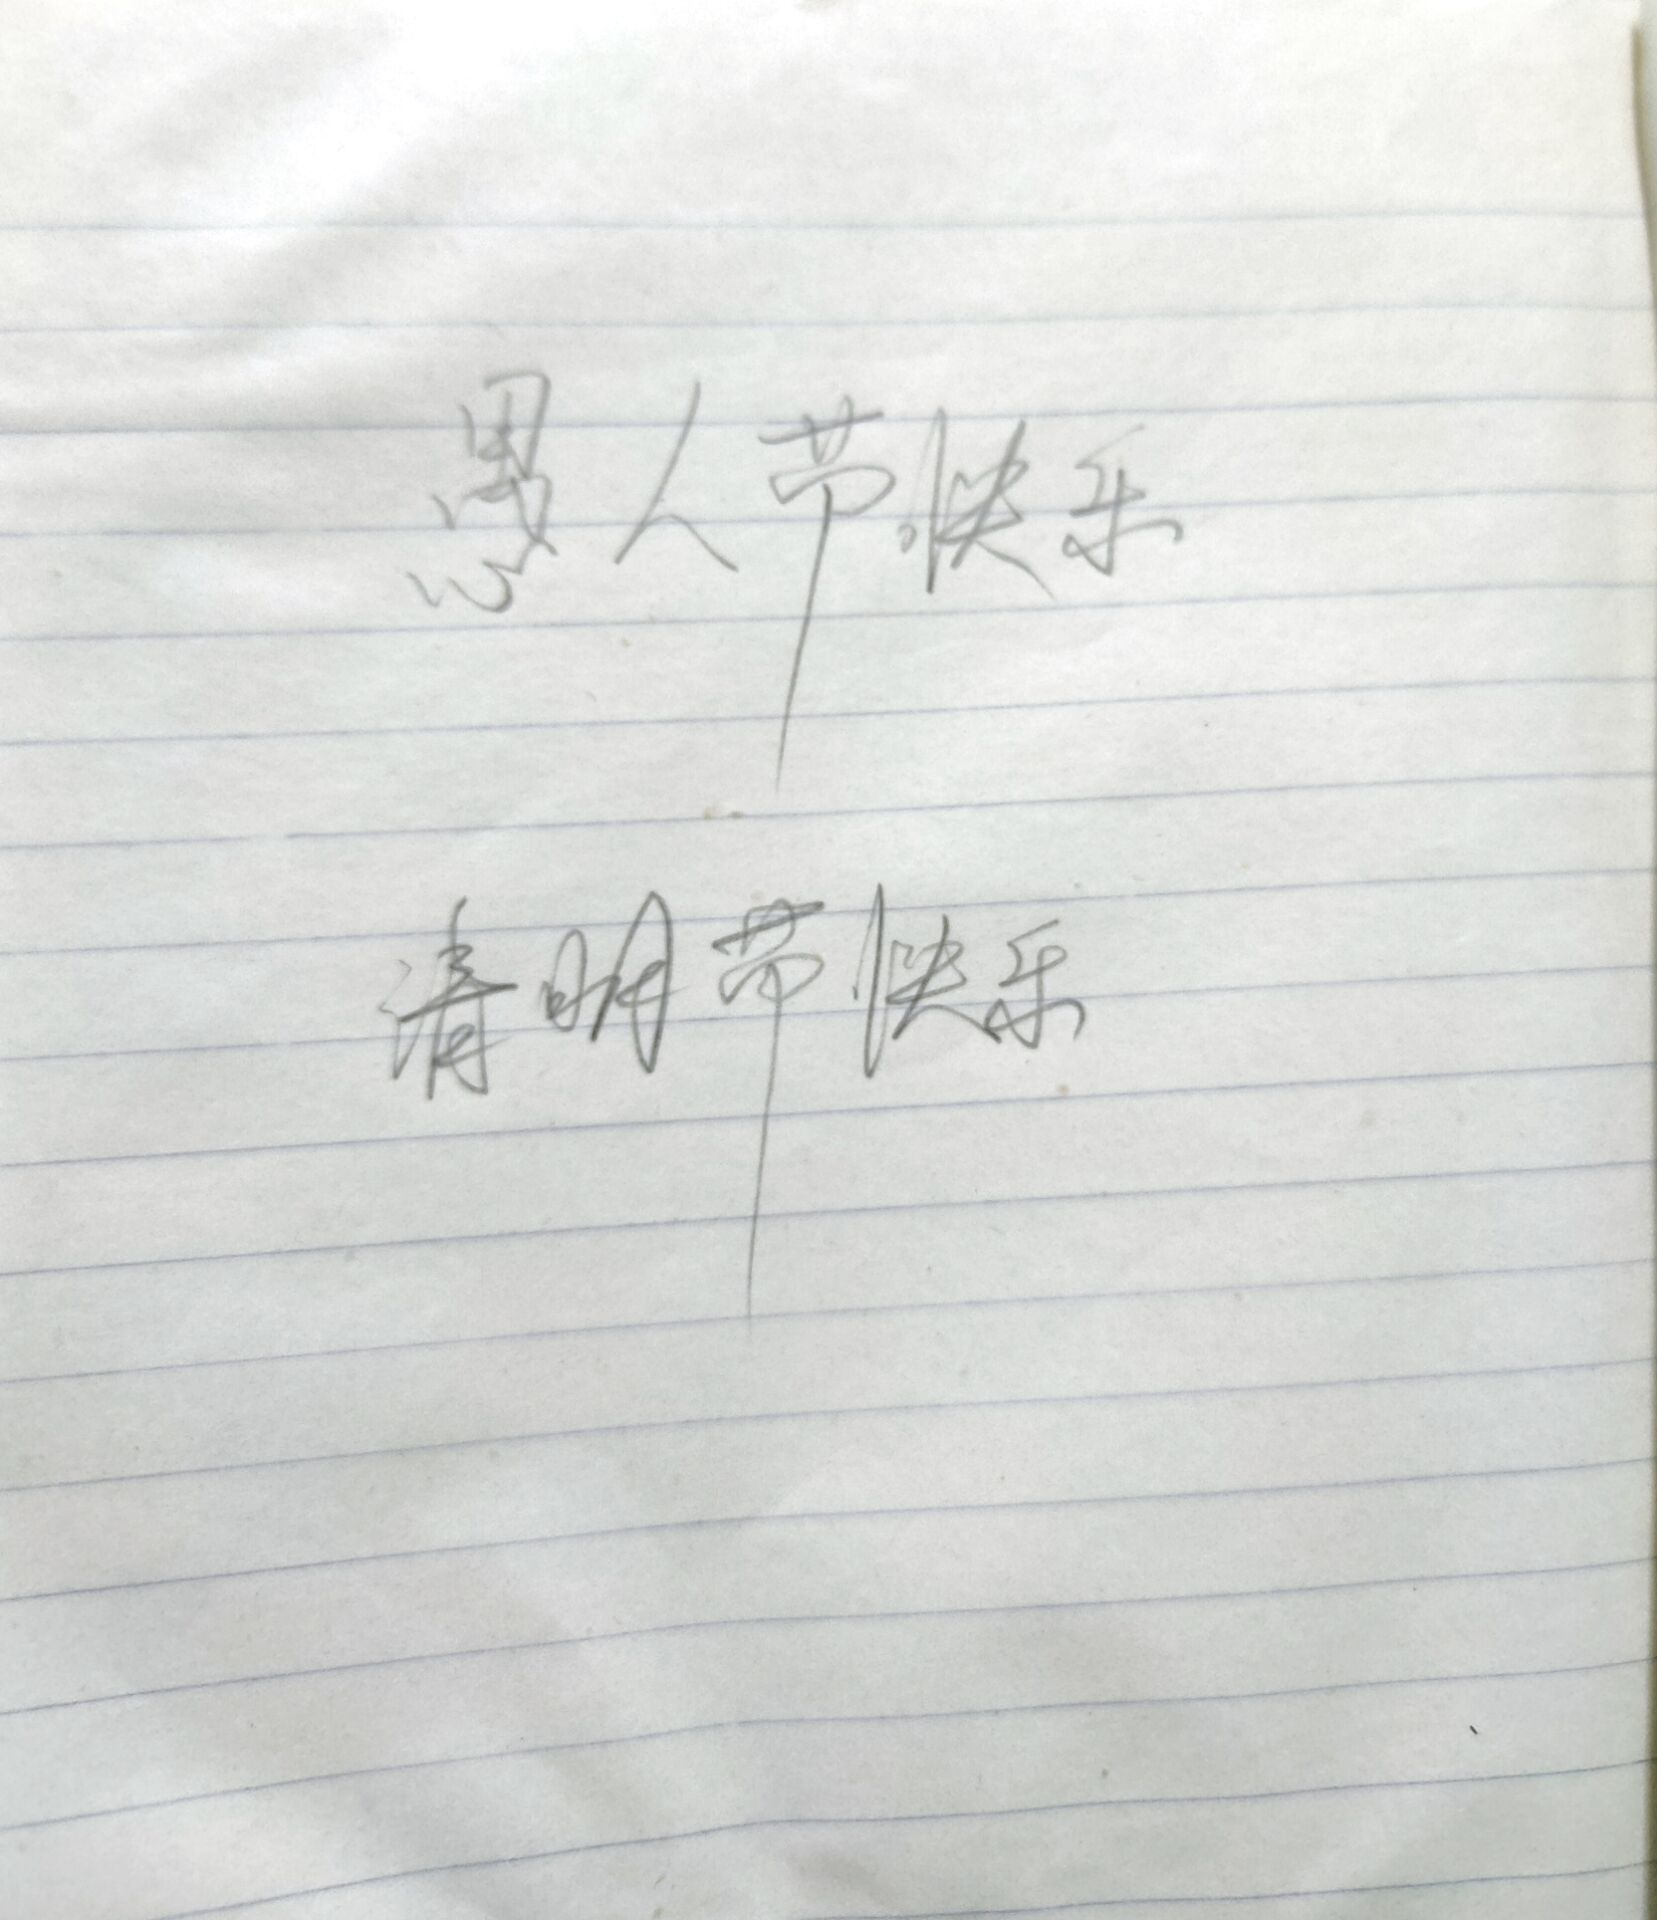 愚人节快乐
清明节快乐